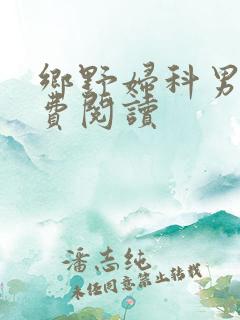 鄉野婦科男
費閱讀
潘志純
未经同意禁止转载